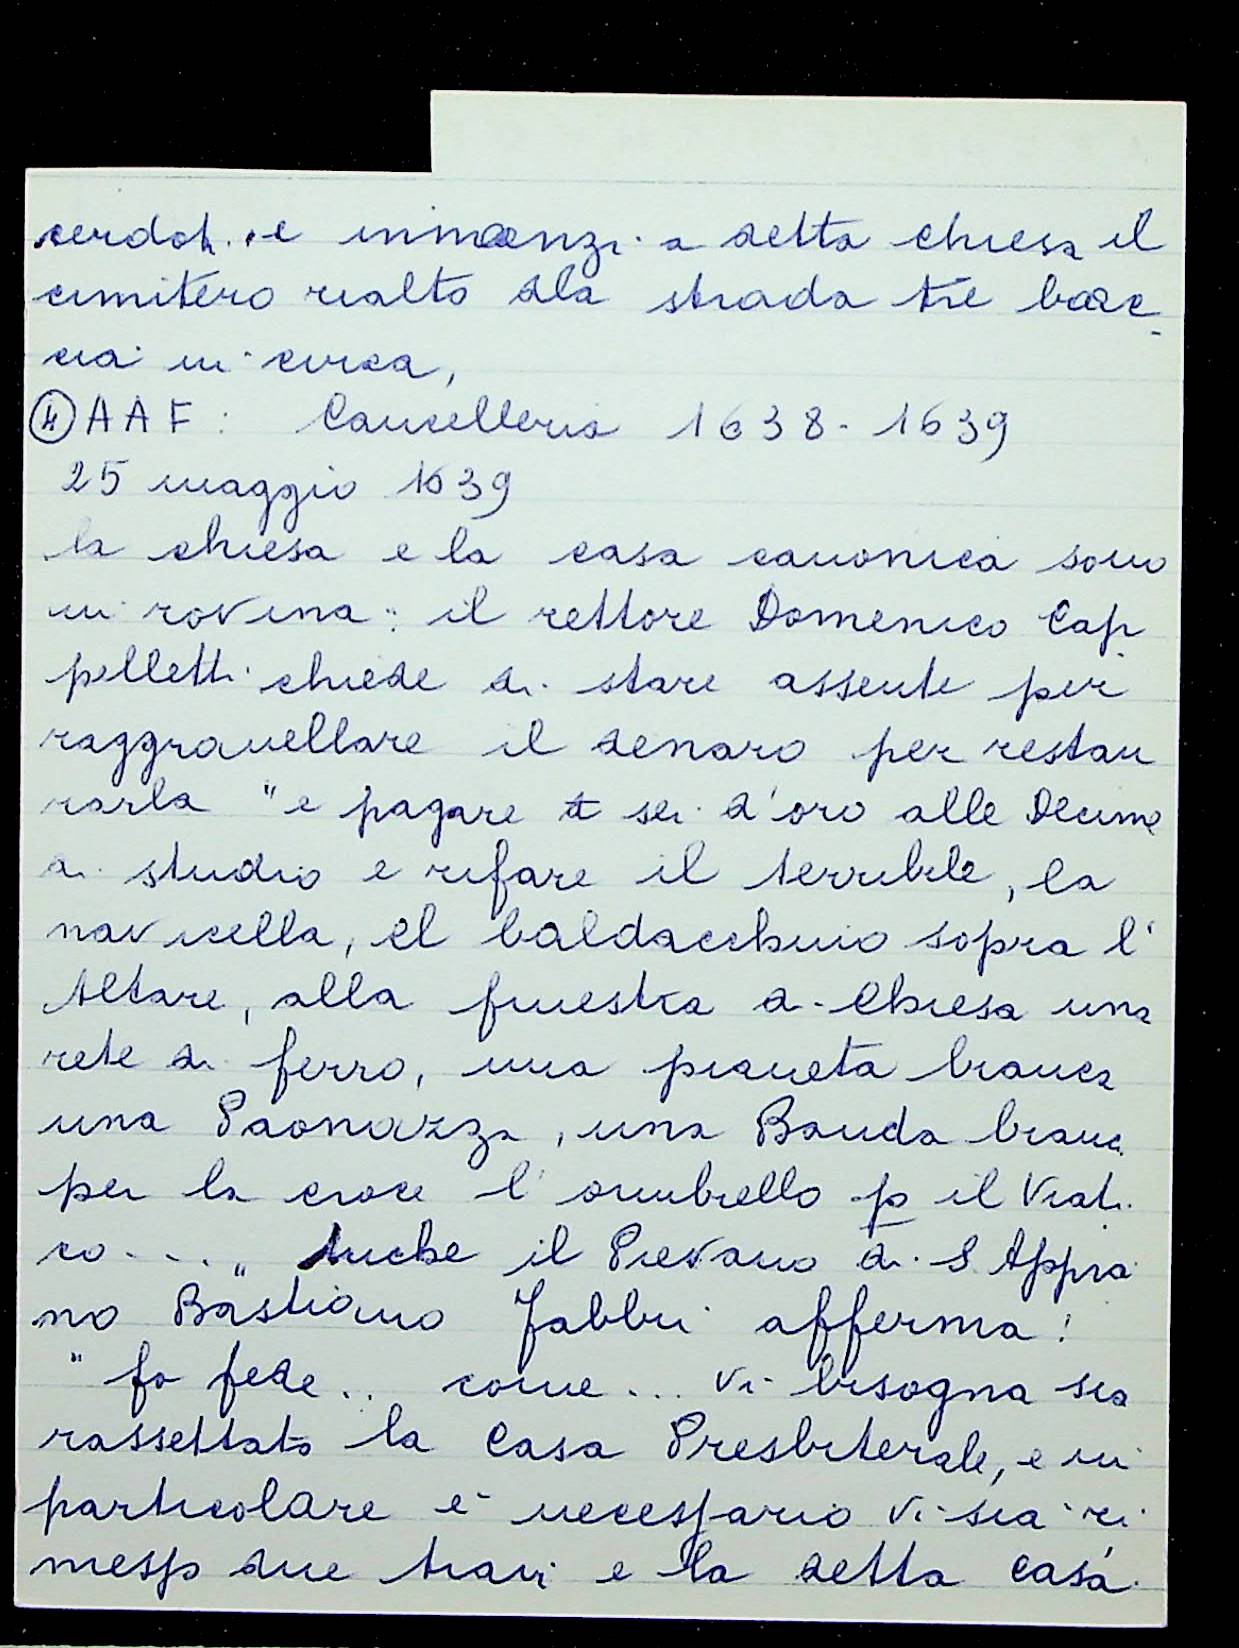 cerdoti. e innanzi a detta chiesa il
cimitero rialto dla strada tre brac
cia in circa,
④ A A F : Cancelleria 1638 - 1639
25 maggio 1639
la chiesa e la casa canonica sono
in rovina: il rettore Domenico Cap
pelletti chiede di stare assente per
raggranellare il denaro per restau
rarla "e pagare sei d'oro alle Decime
di studio e rifare il terribile, la
navicella, el baldacchino sopra l'
Altare, alla finestra di Chiesa una
rete di ferro, una pianeta bianca
una Paonazza, una Banda bianc.
per la croce l'ombrello p il Viati
co - - ." Anche il Pievano di S. Appia
no Bastiano Fabbri afferma:
"fo fede .. come ... vi bisogna sia
rassettato la Casa Presbiterale, e in
particolare è necessario vi sia ri
messo due travi e la detta casa